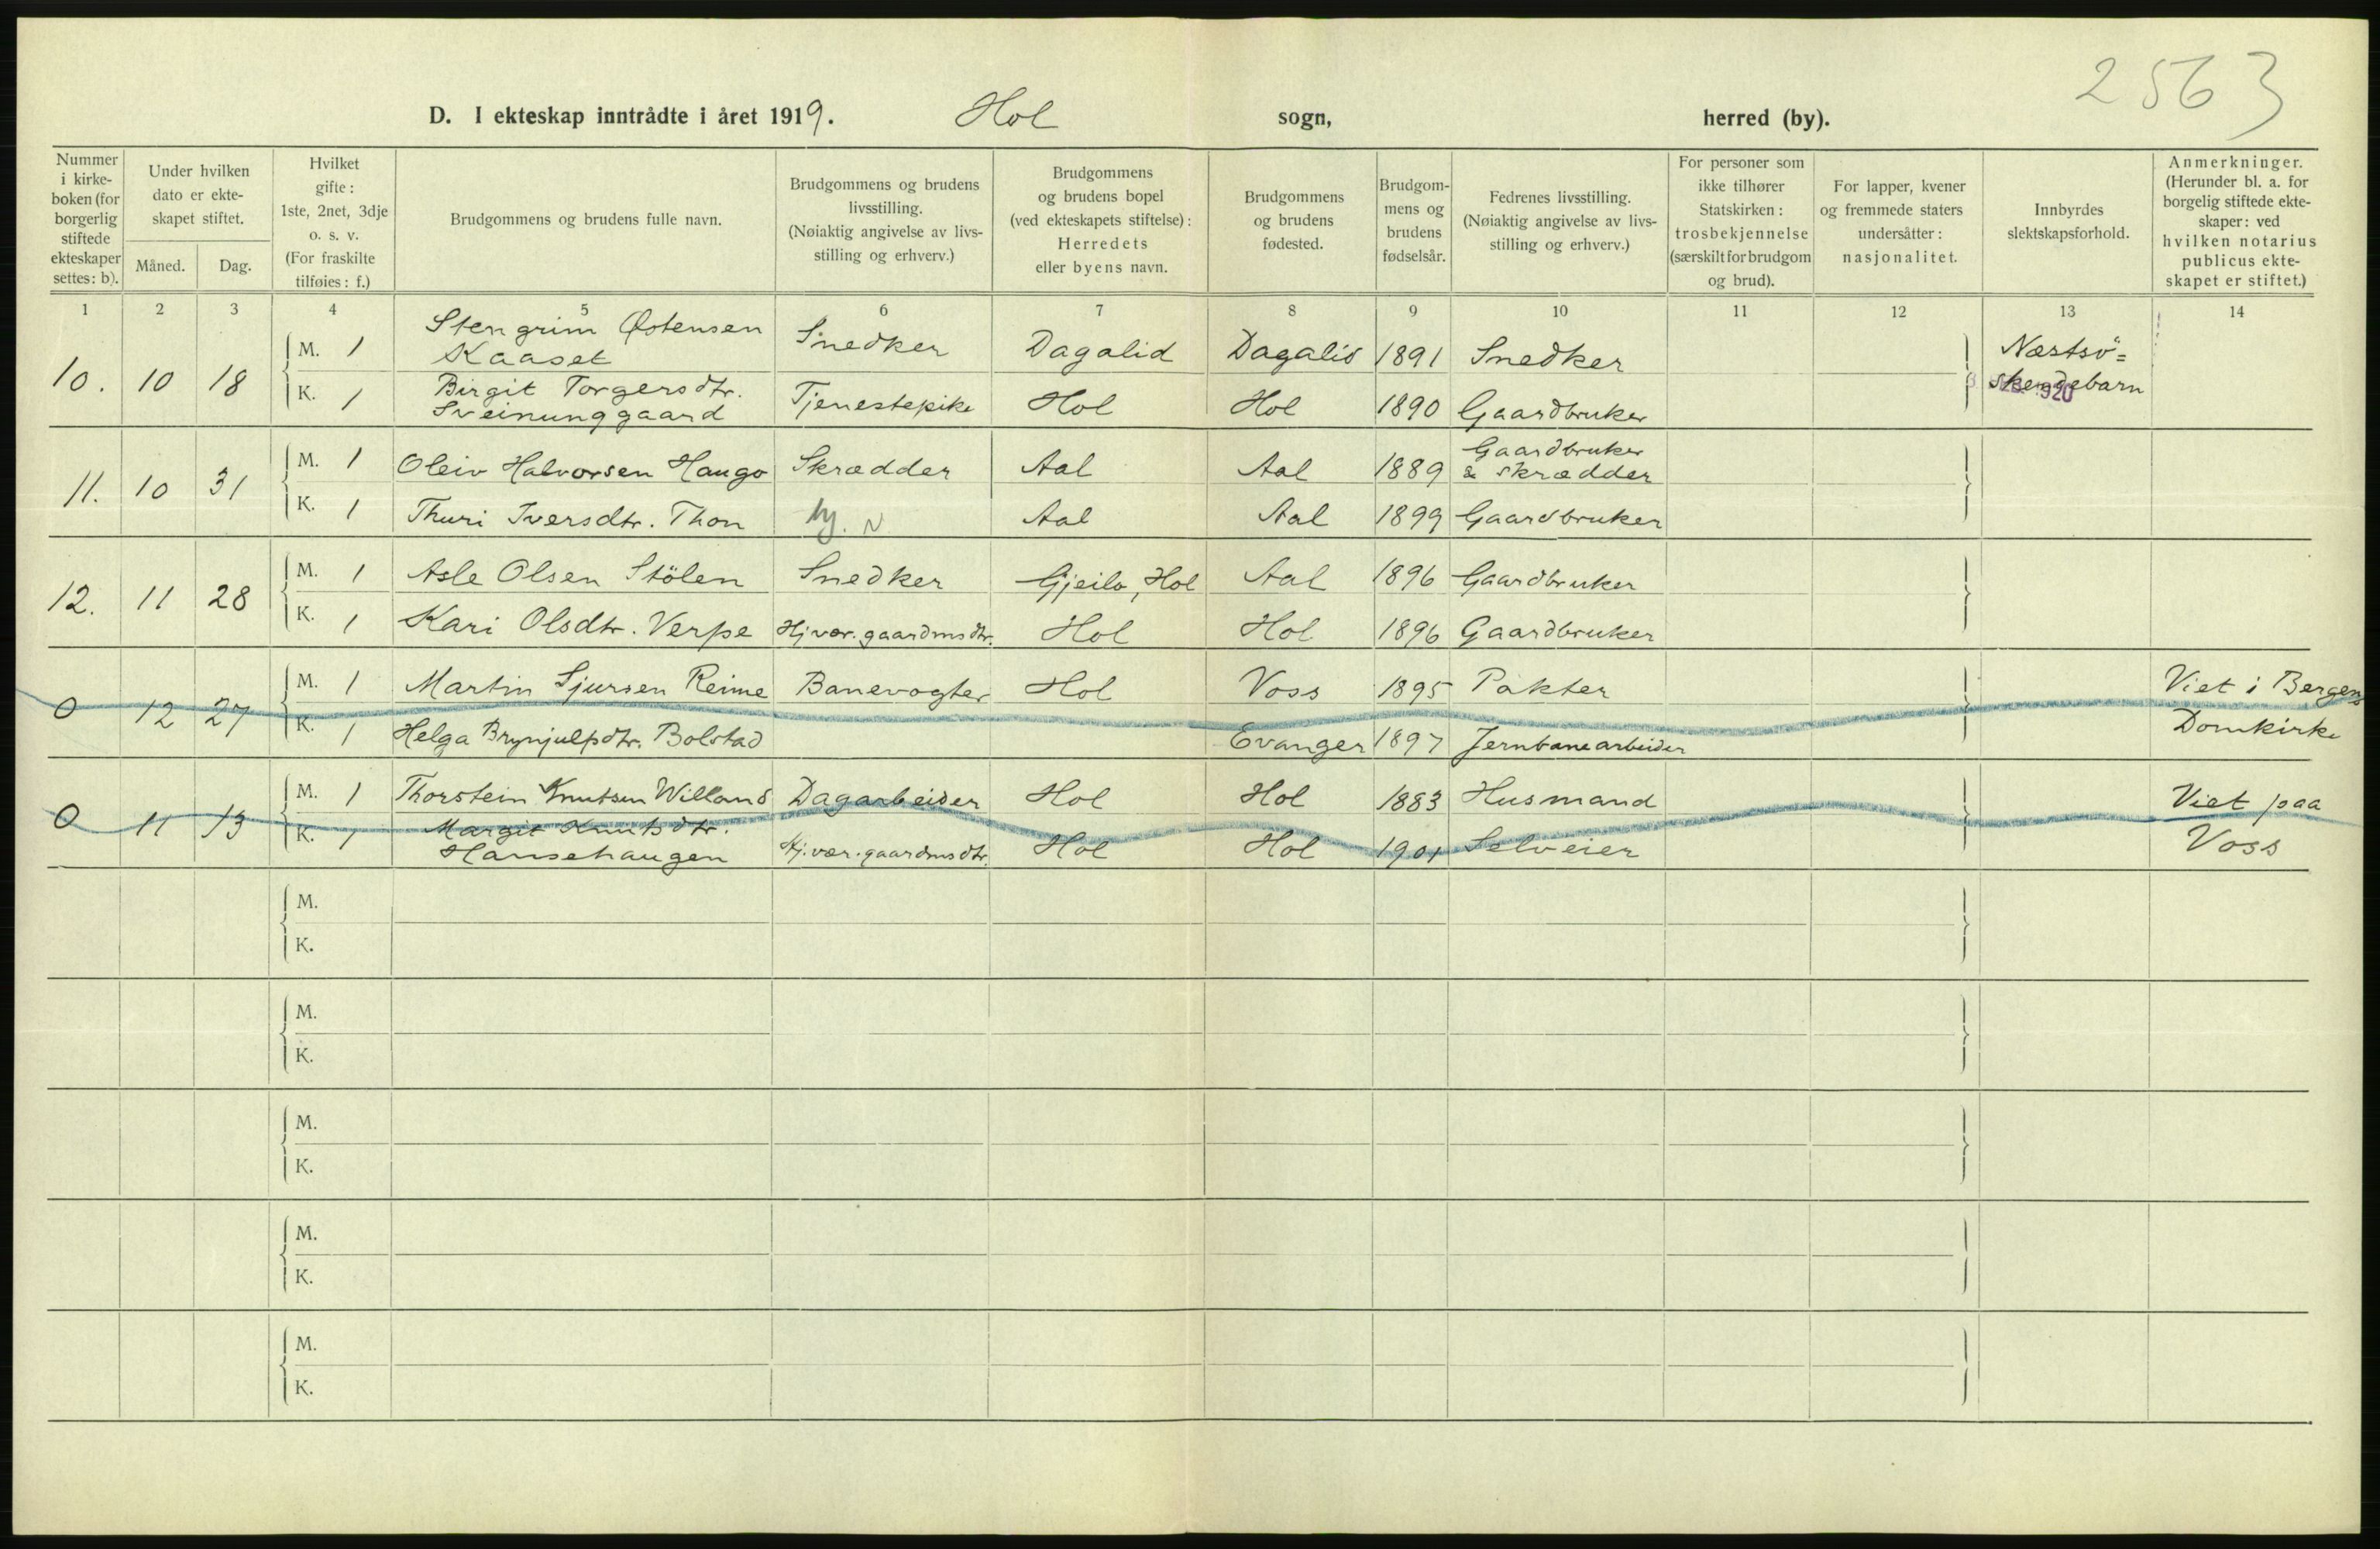 2563
D. I ekteskap inntrådte i året 1919. Hol sogn, herred (by).
Nummer i kirkeboken (for borgerlig stiftede ekteskaper settes: b).
Under hvilken dato er ekteskapet stiftet.
Måned. Dag.
Hvilket gifte: 1ste, 2net, 3dje o. s. v. (For fraskilte tilføies: f.)
Brudgommens og brudens fulle navn.
Brudgommens og brudens livsstilling. (Nøiaktig angivelse av livsstilling og erhverv.)
Brudgommens og brudens bopel (ved ekteskapets stiftelse): Herredets eller byens navn.
Brudgommens og brudens fødested.
Brudgommens og brudens fødselsår.
Fedrenes livsstilling. (Nøiaktig angivelse av livsstilling og erhverv.)
For personer som ikke tilhører Statskirken: trosbekjennelse (særskilt for brudgom og brud).
For lapper, kvener og fremmede staters undersåtter: nasjonalitet.
Innbyrdes slektskapsforhold.
Anmerkninger. (Herunder bl. a. for borgelig stiftede ekteskaper: ved hvilken notarius publicus ekteskapet er stiftet.)
1 2 3 4 5 6 7 8 9 10 11 12 13 14
10. 10 18 M. 1 Stengrim Østensen Kaaset Snedker Dagalid Dagalid 1891 Snedker Næstsö=
K. 1 Birgit Torgersdtr. Sveinunggaard Tjenestepike Hol Hol 1890 Gaardbruker skendebarn 920
11. 10 31 M. 1 Oleiv Halvorsen Haugo Skrædder Aal Aal 1889 Gaardbruker & skrædder
K. 1 Thuri Iversdtr. Thon hj. N Aal Aal 1899 Gaardbruker
12. 11 28 M. 1 Asle Olsen Stölen Snedker Gjeilo, Hol Aal 1896 Gaardbruker
K. 1 Kari Olsdtr. Verpe Hj.vær. gaardmsdtr. Hol Hol 1896 Gaardbruker
0 12 27 M. 1 Martin Sjursen Reime Banevogter Hol Voss 1895 Pakter Viet i Bergens
K. 1 Helga Brynjulfsdtr. Bolstad Evanger 1897 Jernbanearbeider Domkirke
0 11 13 M. 1 Thorstein Knutsen Willand Dagarbeider Hol Hol 1883 Husmand Viet paa
K. 1 Margit Knutsdtr. Hansehaugen Hj.vær. gaardmsdtr. Hol Hol 1901 Selveier Voss
M.
K.
M.
K.
M.
K.
M.
K.
M.
K.